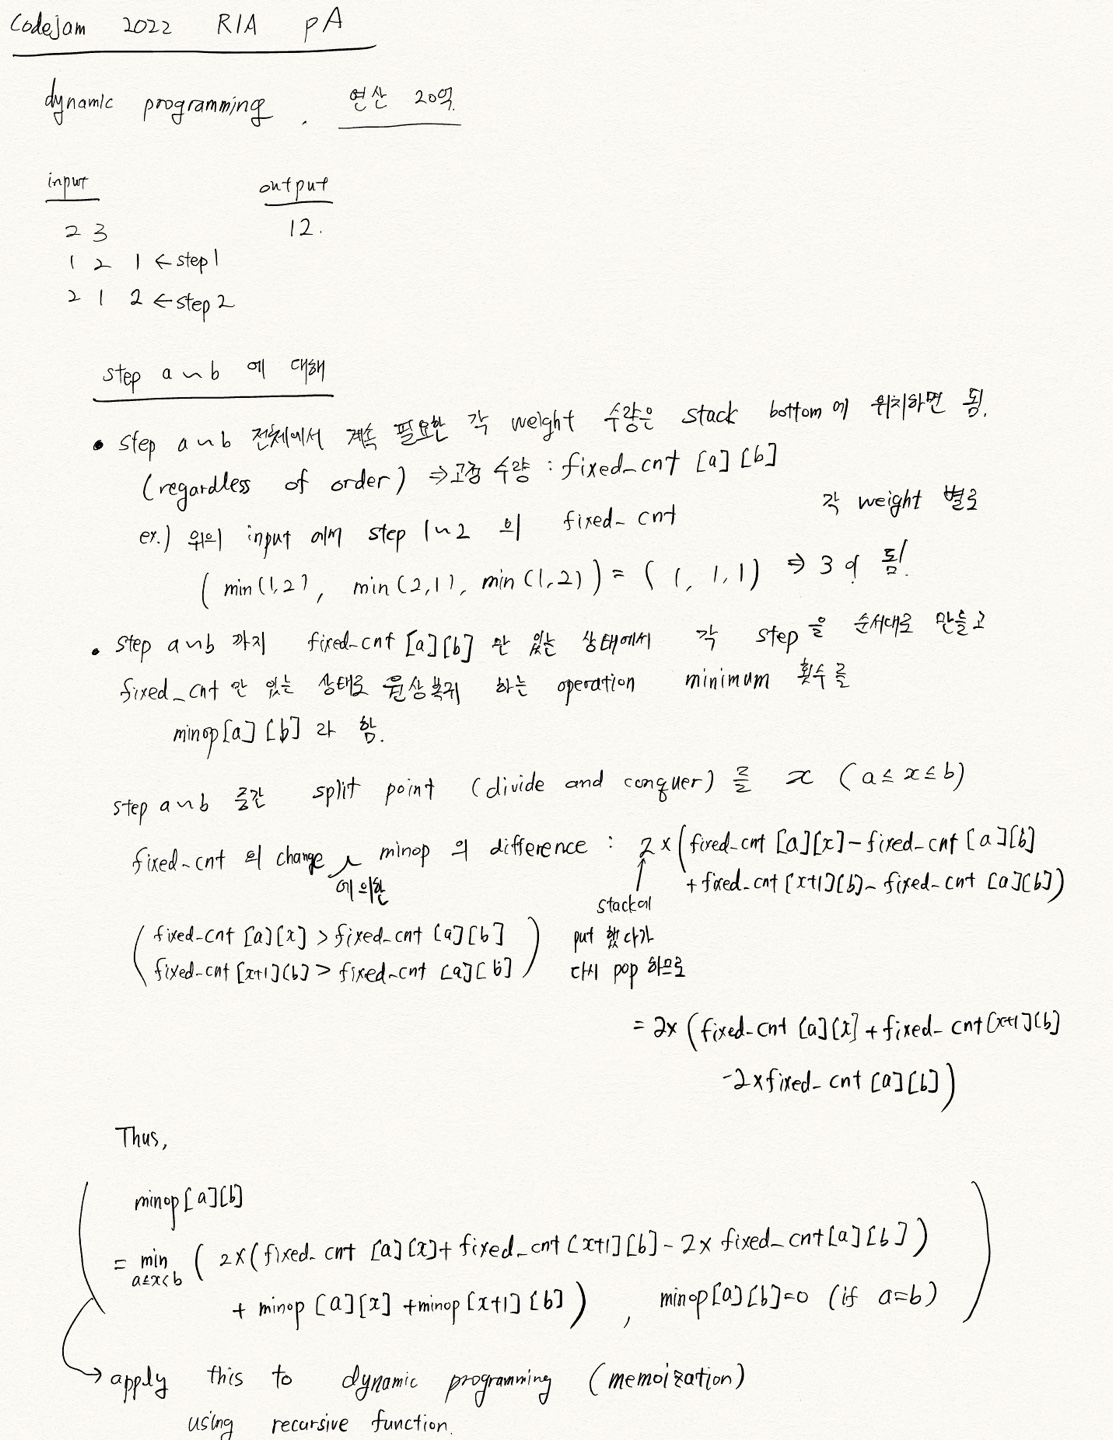 Codejam 2022 R1A pA
dynamic programming. 연산 20억.
input output
2 3 12.
1 2 1 ← step 1
2 1 2 ← step 2
step a~b 에 대해
• step a~b 전체에서 계속 필요한 각 weight 수량은 stack bottom에 위치하면 됨.
(regardless of order) ⇒ 고정 수량 : fixed_cnt [a][b]
ex.) 위의 input 에서 step 1~2 의 fixed_cnt 각 weight 별로
(min(1,2), min(2,1), min(1,2)) = (1, 1, 1) ⇒ 3이 됨!
• step a~b 까지 fixed_cnt [a][b] 만 있는 상태에서 각 step을 순서대로 만들고
fixed_cnt 만 있는 상태로 원상복귀 하는 operation minimum 횟수를
minop[a][b] 라 함.
step a~b 중간 split point (divide and conquer) 를 x (a≤x≤b)
fixed_cnt 의 change 에 의한 minop 의 difference : 2×(fixed_cnt [a][x] - fixed_cnt [a][b]
+ fixed_cnt [x+1][b] - fixed_cnt [a][b])
(fixed_cnt [a][x] > fixed_cnt [a][b]
fixed_cnt [x+1][b] > fixed_cnt [a][b])
stack에
put 했다가
다시 pop 하므로
= 2×(fixed_cnt [a][x] + fixed_cnt [x+1][b]
-2×fixed_cnt [a][b])
Thus,
minop[a][b]
= min a≤x<b (2×(fixed_cnt [a][x]+ fixed_cnt [x+1][b] - 2× fixed_cnt[a][b])
+ minop [a][x] +minop[x+1][b]) , minop[a][b]=0 (if a=b)
→ apply this to dynamic programming (memoization)
using recursive function.